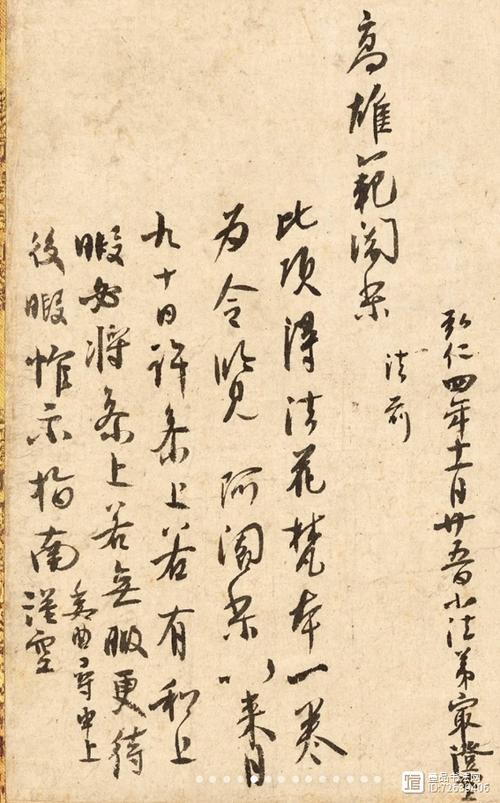 弘仁四年十一月廿五日小法弟最澄
高雄範闍梨
法前
此頃得法花梵本一巻
為令覧阿闍梨以来月
九十日許参上若有和上
暇必将参上若無暇更待
後暇惟示指南委曲尋申上
謹空
壹品书法网
ID:72639406